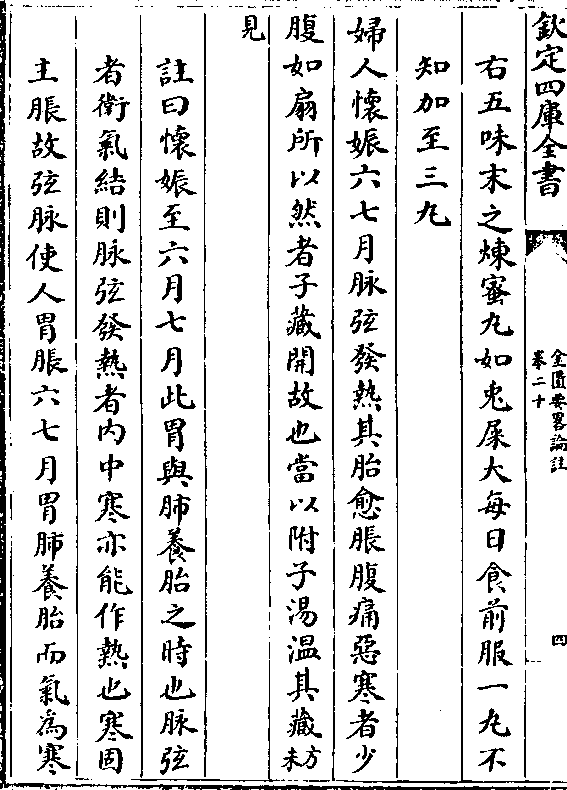 欽定四庫全書
金匱要畧論註
卷二十
四
右五味末之煉蜜丸如兎屎大每日食前服一丸不
知加至三丸
婦人懷娠六七月脉弦發熱其胎愈脹腹痛惡寒者少
腹如扇所以然者子藏開故也當以附子湯温其藏方未
見
註曰懷娠至六月七月此胃與肺養胎之時也脉弦
者衛氣結則脉弦發熱者内中寒亦能作熱也寒固
主脹故弦脉使人胃脹六七月胃肺養胎而氣為寒